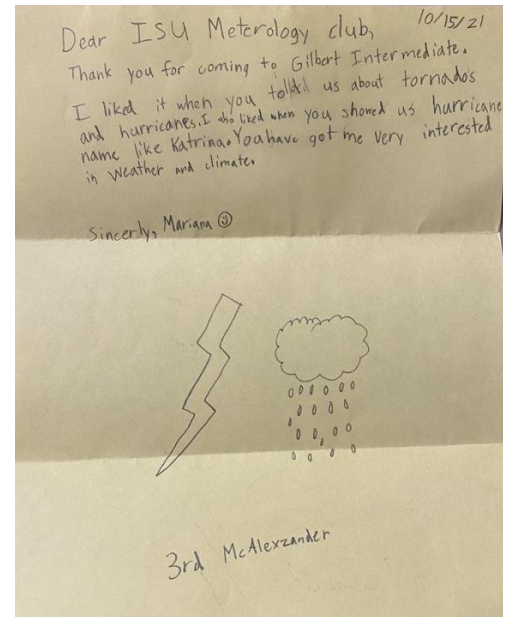 10/15/21
Dear ISU Meterology club,
Thank you for coming to Gilbert Intermediate.
I liked it when you told us about tornados
and hurricanes. I also liked when you showed us hurricane
name like Katrina. You have got me very interested
in weather and climate.
Sincerly, Mariana
3rd McAlexzander